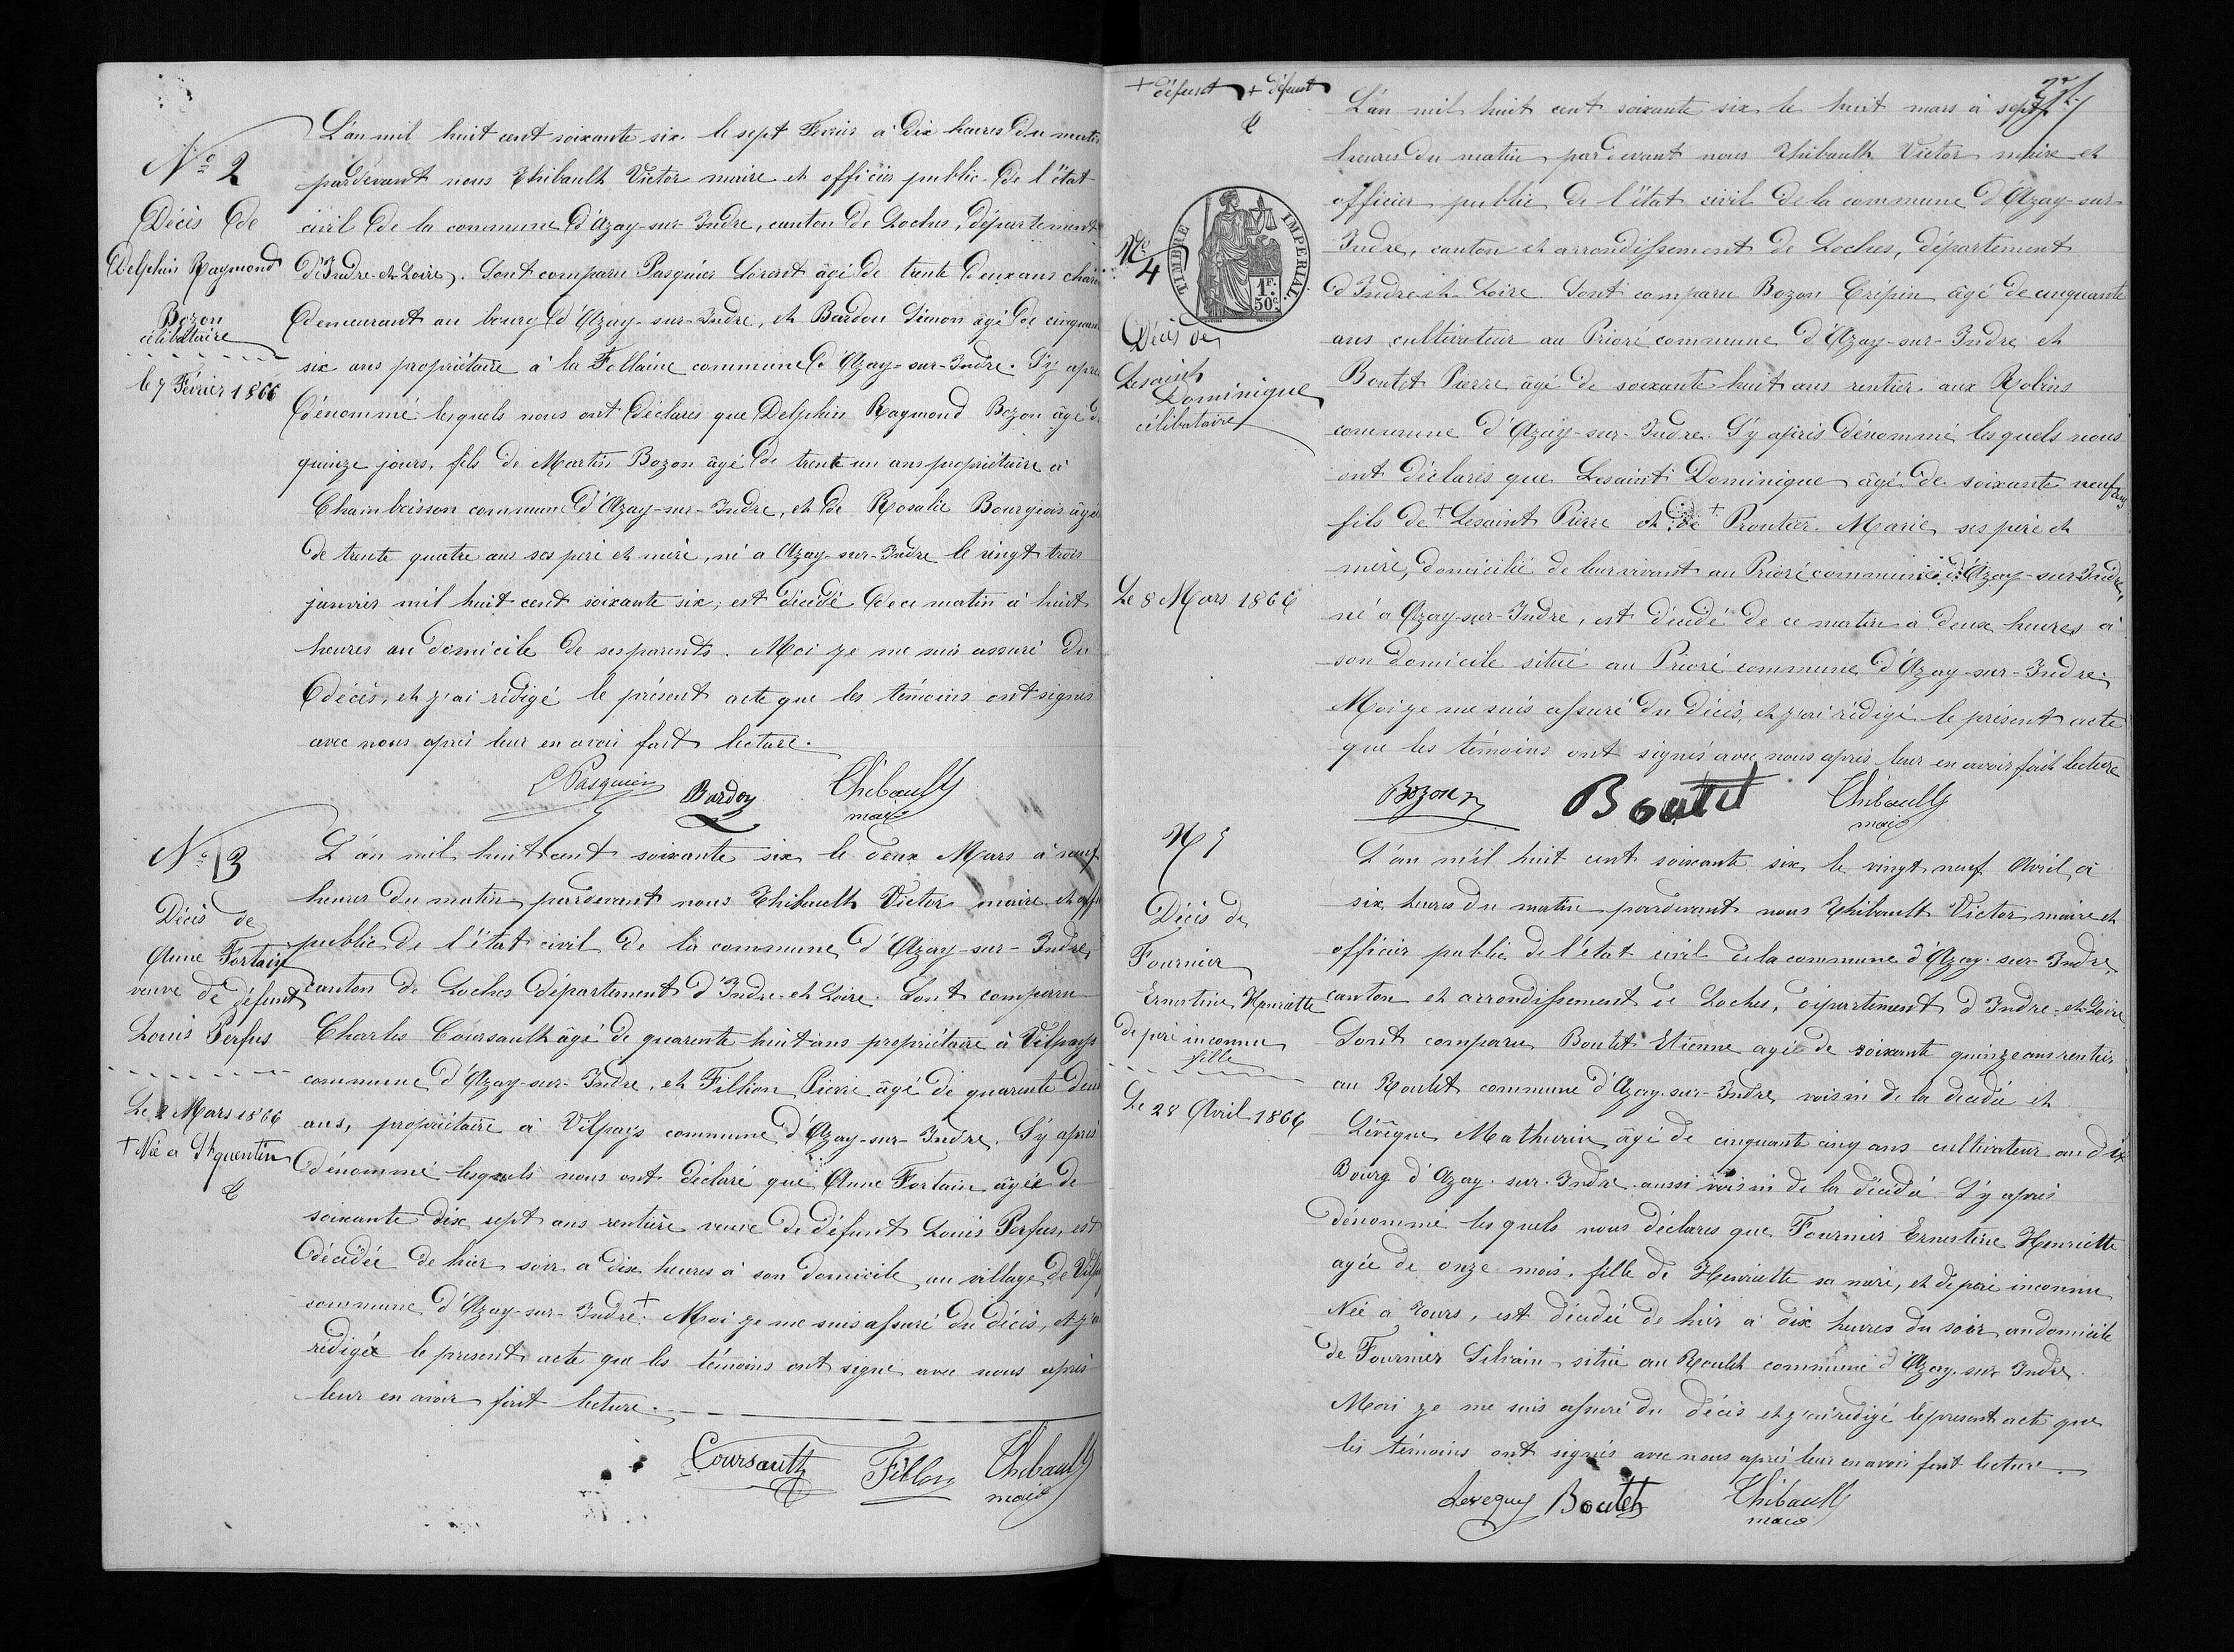 N° 2
Décès de
Delphin Raymond
Bozon
célibataire
le 7 Février 1866
L'an mil huit cent soixante six le sept Février à dix heures du matin
pardevant nous Thibault Victor maire et officier public de l'état
civil de la commune d'Azay-sur-Indre, canton de Loches, département
d'Indre-et-Loire. Sont comparu Pasquier Lorent âgé de trente deux ans
demeurant au bourg d'Azay-sur-Indre, et Bardou Simon âgé de cinquante
six ans propriétaire à la Follaine commune d'Azay-sur-Indre. S'y après
dénommé lesquels nous ont déclarés que Delphin Raymond Bozon âgé de
quinze jours, fils de Martin Bozon âgé de trente un ans propriétaire à
Chamboisson commune d'Azay-sur-Indre, et de Rosalie Bourgeois âgée
de trente quatre ans ses père et mère, né a Azay-sur-Indre le vingt trois
janvier mil huit cent soixante six, est décédé de ce matin à huit
heures au domicile de ses parents. Moi je me suis assuré du
décès, et j'ai rédigé le présent acte que les témoins ont signés
avec nous après leur en avoir fait lecture.
L Pasquier Bardou Thibault
maire
N° 3
Décès de
Anne Fortain
veuve de défunt
Louis Perfus
Le 2 Mars 1866
+ Née a St quentin
L'an mil huit cent soixante six le deux Mars à neuf
heures du matin pardevant nous Thibault Victor maire et
public de l'état civil de la commune d'Azay-sur-Indre,
canton de Loches département d'Indre-et-Loire. Sont comparu
Charles Coursault âgé de quarente huit ans propriétaire à Vilpays
commune d'Azay-sur-Indre, et Fillion Pierre âgé de quarente deux
ans, propriétaire à Vilpays commune d'Azay-sur-Indre. S'y après
dénommé lesquels nous ont déclaré que Anne Fortain âgée de
soixante dix sept ans rentière veuve de défunt Louis Perfus, est
décédée de hier soir a dix heures à son domicile au village de
commune d'Azay-sur-Indre +. Moi je me suis assuré du décès, et j'ai
rédigée le present acte que les témoins ont signe avec nous après
leur en avoir fait lecture.
Coursault Fillon Thibault
maire
+ défunt + défunt
N° 4
TIMBRE IMPERIAL.
1F. 50c.
Décès de
Lesaint
Dominique
célibataire
Le 8 Mars 1866
L'an mil huit cent soixante six le huit mars à sept
heures du matin pardevant nous Thibault Victor maire et
officier public de l'état civil de la commune d'Azay-sur-
Indre, canton et arrondissement de Loches, département
d'Indre-et-Loire. Sont comparu Bozon Crépin âgé de cinquante
ans cultivateur au Prioré commune d'Azay-sur-Indre et
Boutet Pierre âgé de soixante huit ans rentier aux Robins
commune d'Azay-sur-Indre. S'y après dénommé, lesquels nous
ont déclarés que Lesaint Dominique âgé de soixante neuf ans
fils de + Lesaint Pierre et de + Proutier Marie, ses père et
mère, domicilié de leur vivant au Prioré commune d'Azay-sur-Indre,
né a Azay-sur-Indre, est décédé de ce matin à deux heures à
son domicile situé au Prioré commune d'Azay-sur-Indre.
Moi je me suis assuré du décès, et j'ai rédigé le présent acte
que les témoins ont signés avec nous après leur en avoir fait lecture
Bozon Boutet Thibault
maire
N 5
Décès de
Fournier
Ernestine Henriette
de père inconnu
fille
Le 28 Avril 1866
L'an mil huit cent soixante six, le vingt neuf Avril, à
six heures du matin pardevant nous Thibault Victor maire et
officier public de l'état civil de la commune d'Azay-sur-Indre,
canton et arrondissement de Loches, département d'Indre-et-Loire
Sont comparu Boutet Etienne agé de soixante quinze ans rentier
au Roulet commune d'Azay-sur-Indre, voisin de la décédée et
Lévêque Mathurin âgé de cinquante cinq ans cultivateur au dix
Bourg d'Azay-sur-Indre aussi voisin de la décédé. S'y après
dénommé lesquels nous déclares que Fournier Ernestine Henriette
agée de onze mois, fille de Henriette sa mère, et de père inconnu
Née a Tours, est décédée de hier à dix heures du soir au domicile
de Fournier Silvain situé au Roulet commune d'Azay-sur-Indre.
Moi je me suis assuré du décès et j'ai rédigé le present acte que
les témoins ont signés avec nous après leur en avoir fait lecture.
Leveque Boutet Thibault
maire